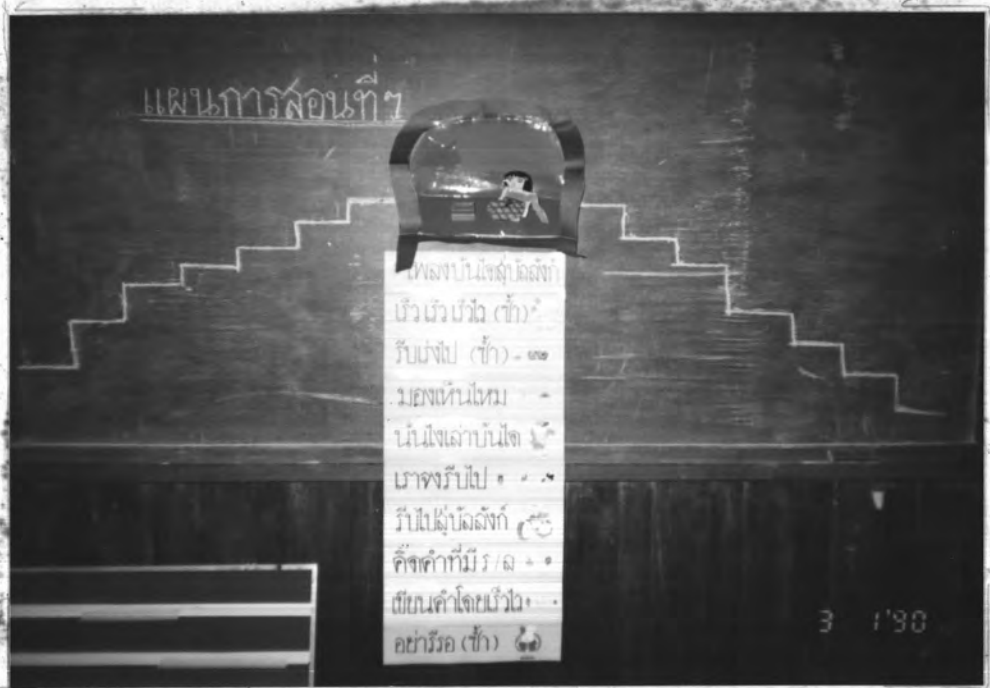 แผนการสอนที่ ๆ
เพลงบันไดสู่บัลลังก์
เร็ว เร็ว เร็วไว (ซ้ำ)
รีบเร่งไป (ซ้ำ)
มองเห็นไหม
นั่นไงเล่าบันได
เราจงรีบไป
รีบไปสู่บัลลังก์
คิดคำที่มี ร/ล
เขียนคำโดยเร็วไว
อย่ารีรอ (ซ้ำ)
3 1'90